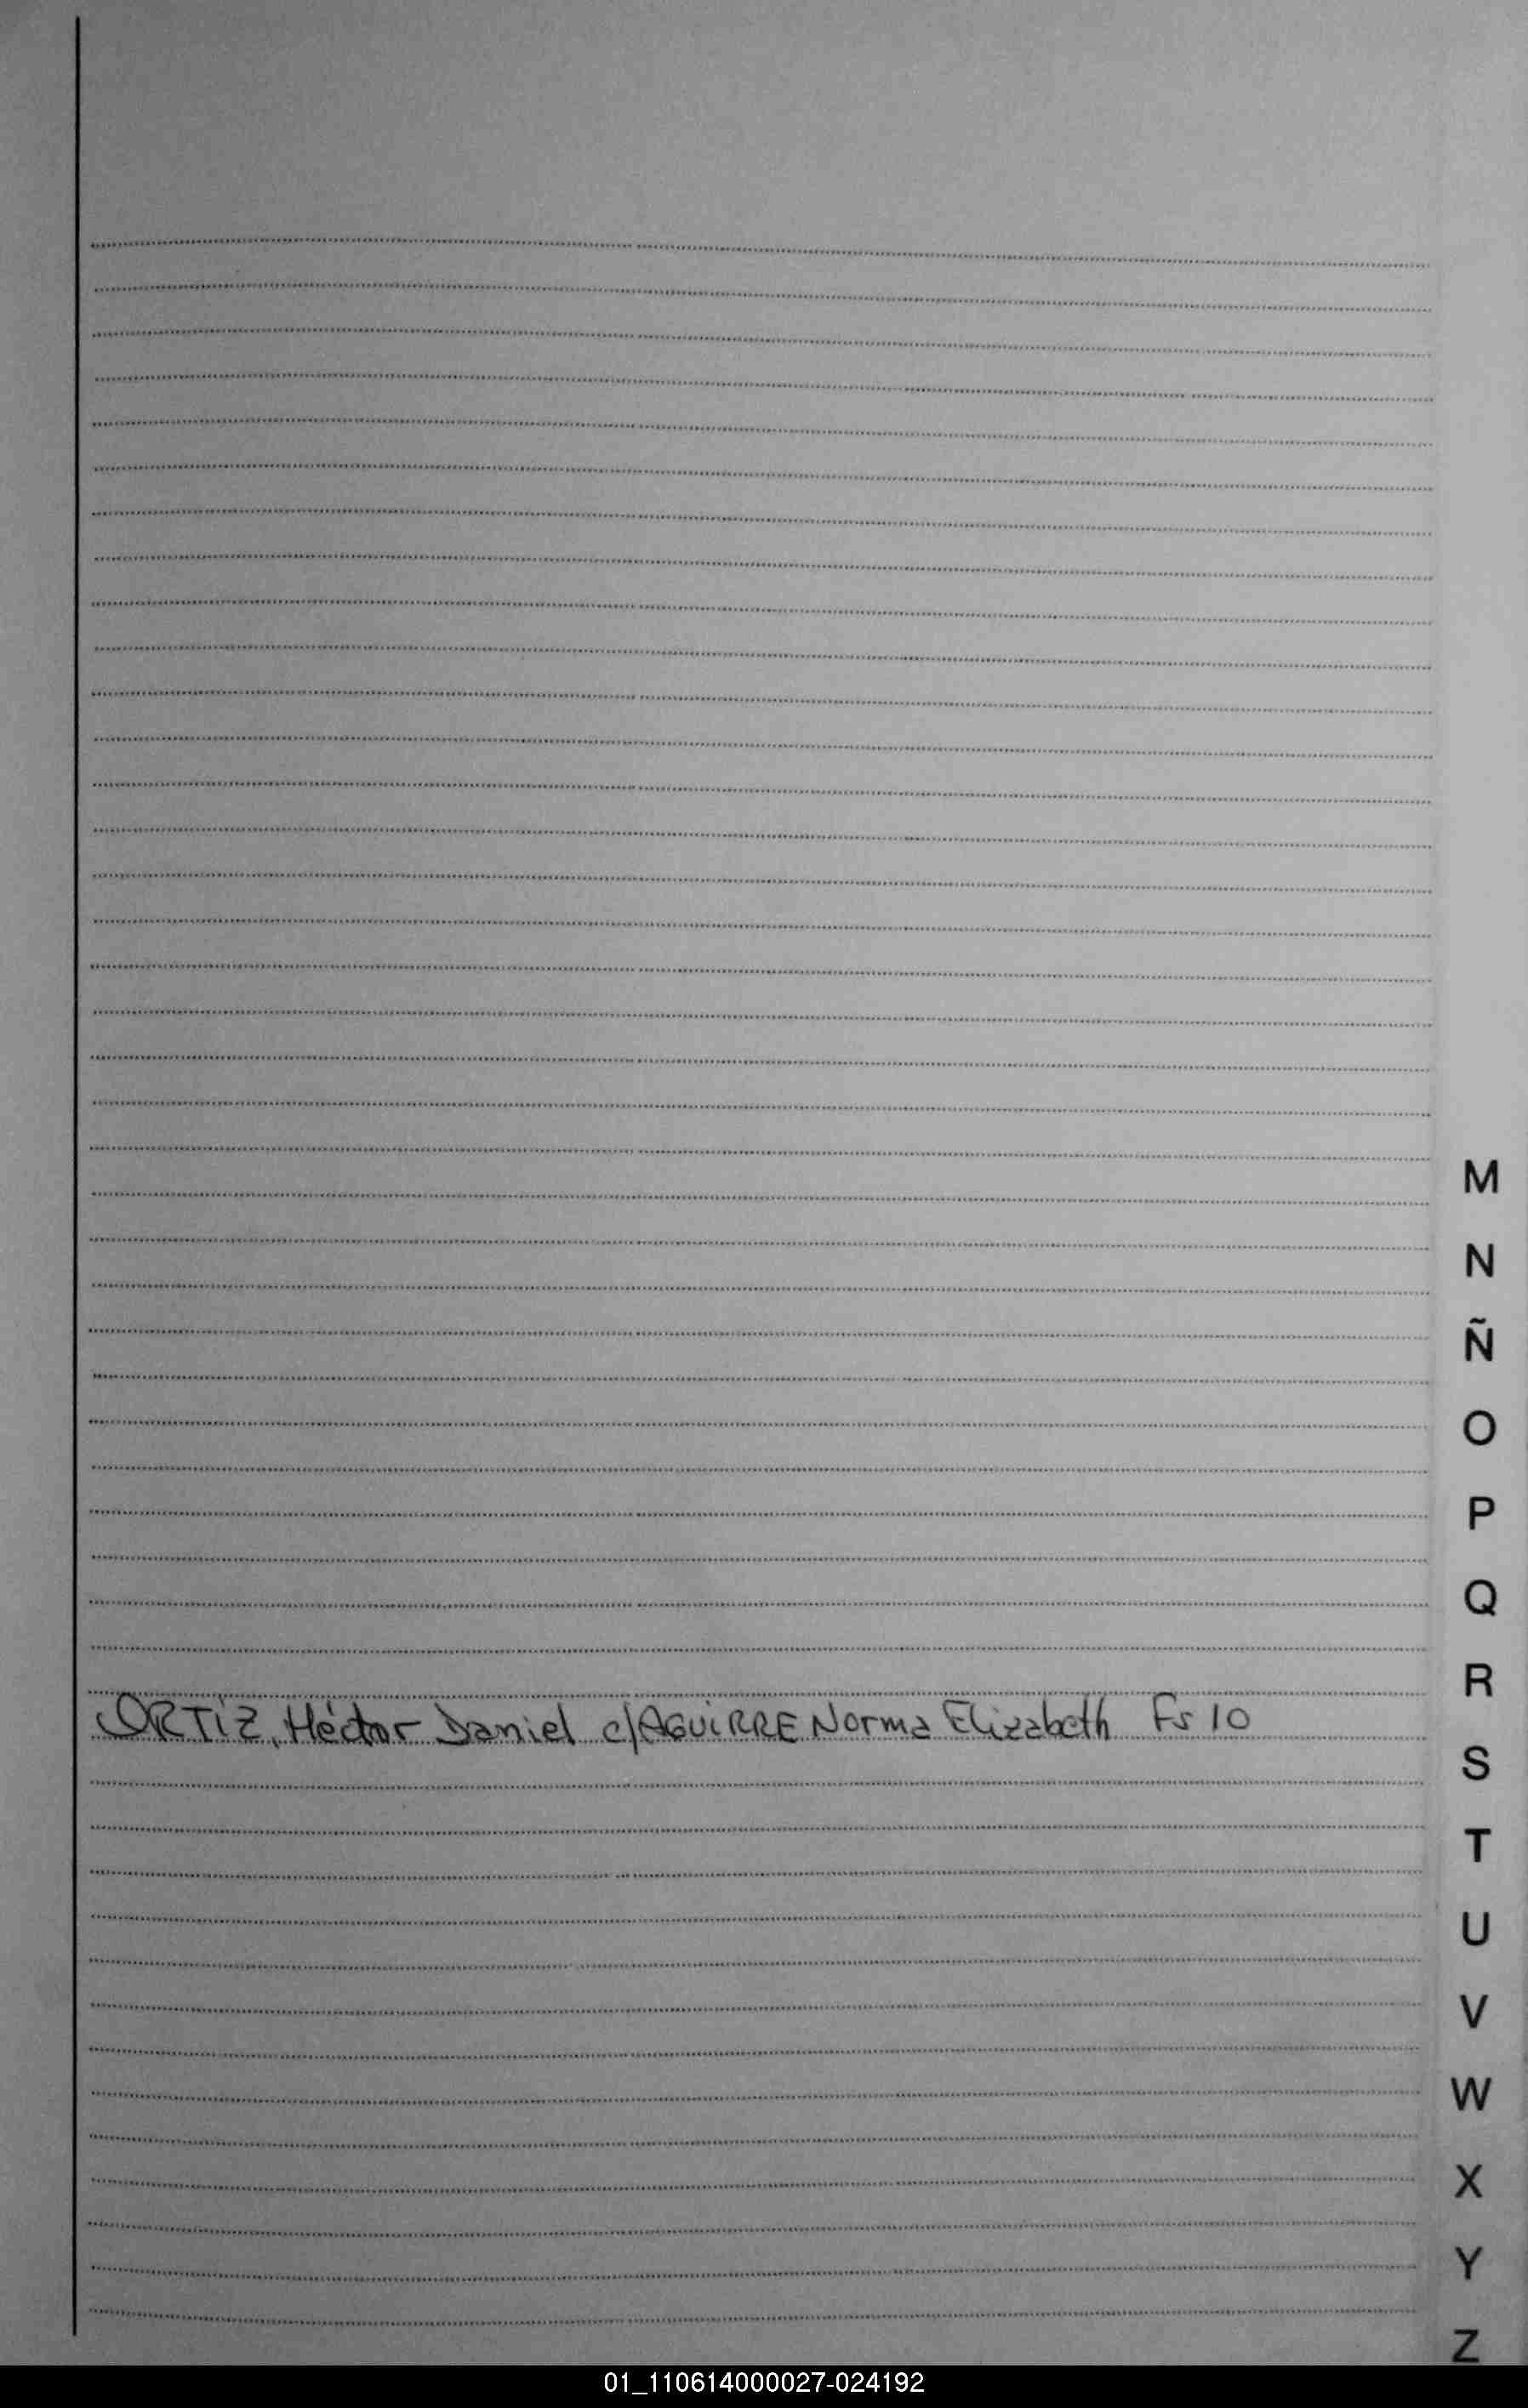 M
N
Ñ
O
P
Q
R
ORTIZ, Héctor Daniel c/AGUIRRE Norma Elizabeth Fs 10
S
T
U
V
W
X
Y
Z
01_110614000027-024192